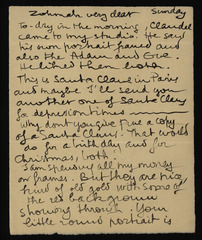 Zohmah very dear Sunday
To-day in the morning, Claudel
came to my studio. He says
his own portrait framed and
also the Adam and Eve.
He liked them a lot.
This is Santa Claus in Paris
and maybe I'll send you
another one of Santa Claus
for
Why don't you give a copy
of a Santa Claus? That would
do for a birthday and for
Christmas, both!
I am spending all my money
on frames. But they are nice
kind of old gold with some of
the red background
showing through. Your
little round portrait is